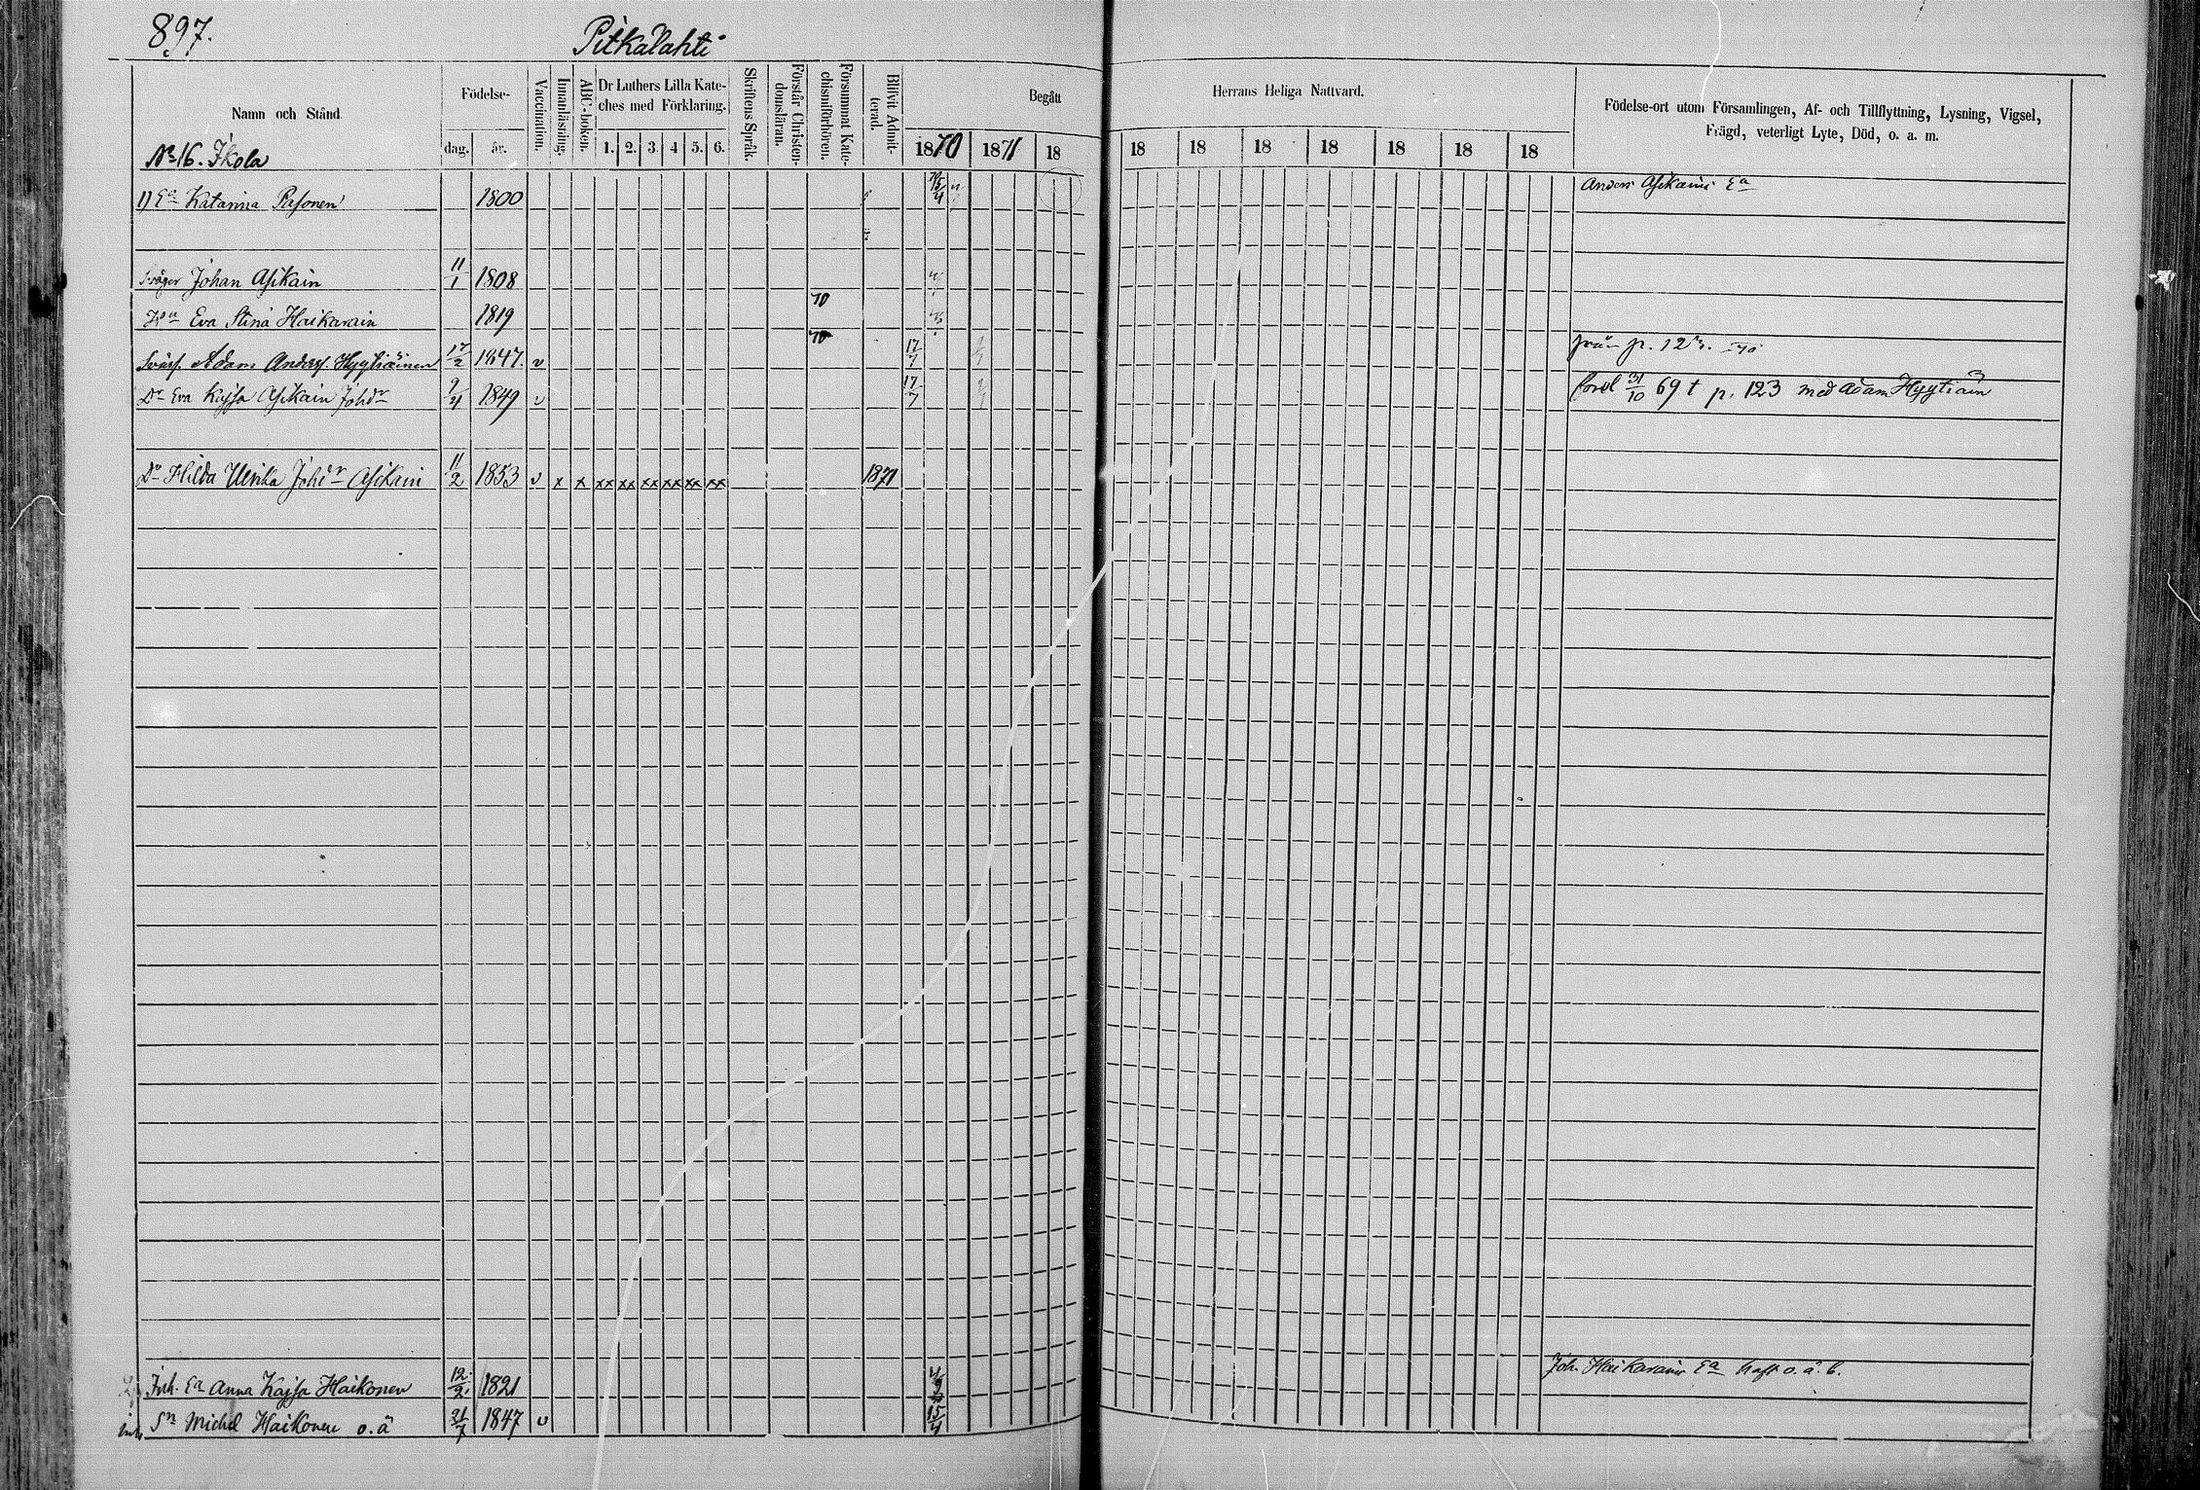 897.
Pitkälahti
Namn och Stånd
Födelse-
dag. år.
Vaccination.
Innanläsning.
ABC-boken.
Dr Luthers Lilla Kate-
ches med Förklaring.
1. 2. 3. 4 5. 6.
Skriftens Språk.
Förstår Christen-
domsläran.
Försummat Kate-
chismiförhören.
Blifvit Admit-
terad.
Begått
Herrans Heliga Nattvard.
1870 1871 18 18 18 18 18 18 18 18
Födelse-ort utom Församlingen, Af- och Tillflyttning, Lysning, Vigsel,
Frägd, veterligt Lyte, Död, o. a. m.
No 16. Ikola
1) Ea Katarina Pasonen 1800 Anders Asikains Ea
Svåger Johan Asikain 11/1 1808
70
Hu Eva Stina Haikarain 1819
70
Adam Anders. Hyytiäinen 17/2 1847. v 17/7 från p. 123.
Dr Eva Kajsa Asikain Johdr 9/4 1849 v 17/7 31/10 69 t p. 123 med Adam Hyytiäin
Dr Hilda Ulrika Johdr Asikain 11/2 1853 v x x xx xx xx xx xx xx 1871
Inh. Ea Anna Kajsa Haikonen 12/2 1821 Joh. Haikarains Ea
Sn Michel Haikonen o.ä 21/7 1847 v 15/4